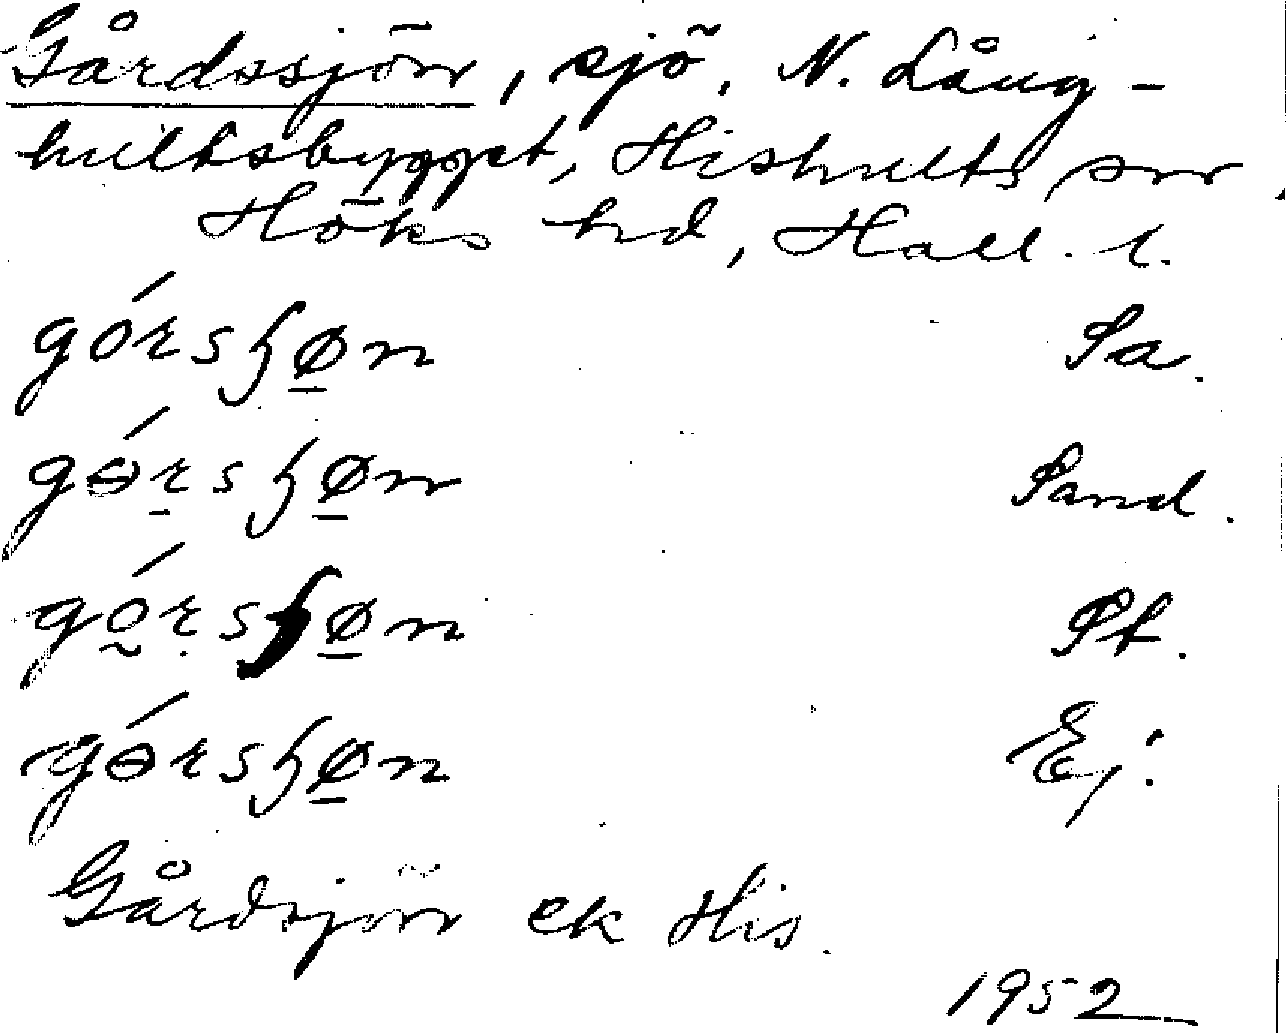 Gårdssjön, sjö, N. Lång-
hultsbygget, Hishults sn,
Höks hd, Hall. l.
górsɧø̠n Sa.
gɵ́rsɧø̠n Sand.
gó̰rsɧø̠n St.
gɵ́rsɧø̠n Ej.
Gårdsjön ek His.
1952